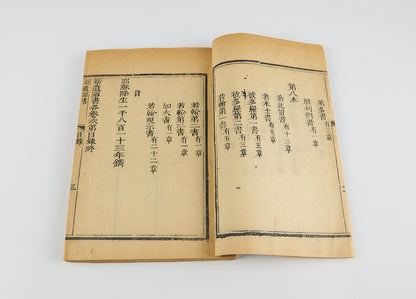 弟多書 有三章
腓利們書 有一章
第八本
希比留書 有十三章
者米士書 有五章
彼多羅第一書 有五章
彼多羅第二書 有三章
若翰第一書 有五章
若翰第二書 有一章
若翰第三書 有一章
如大書 有一章
若翰現示書 有二十二章
旹
耶穌降生一千八百一十三年鐫
新遺詔書各卷次第目錄終
新遺詔書 目錄 三